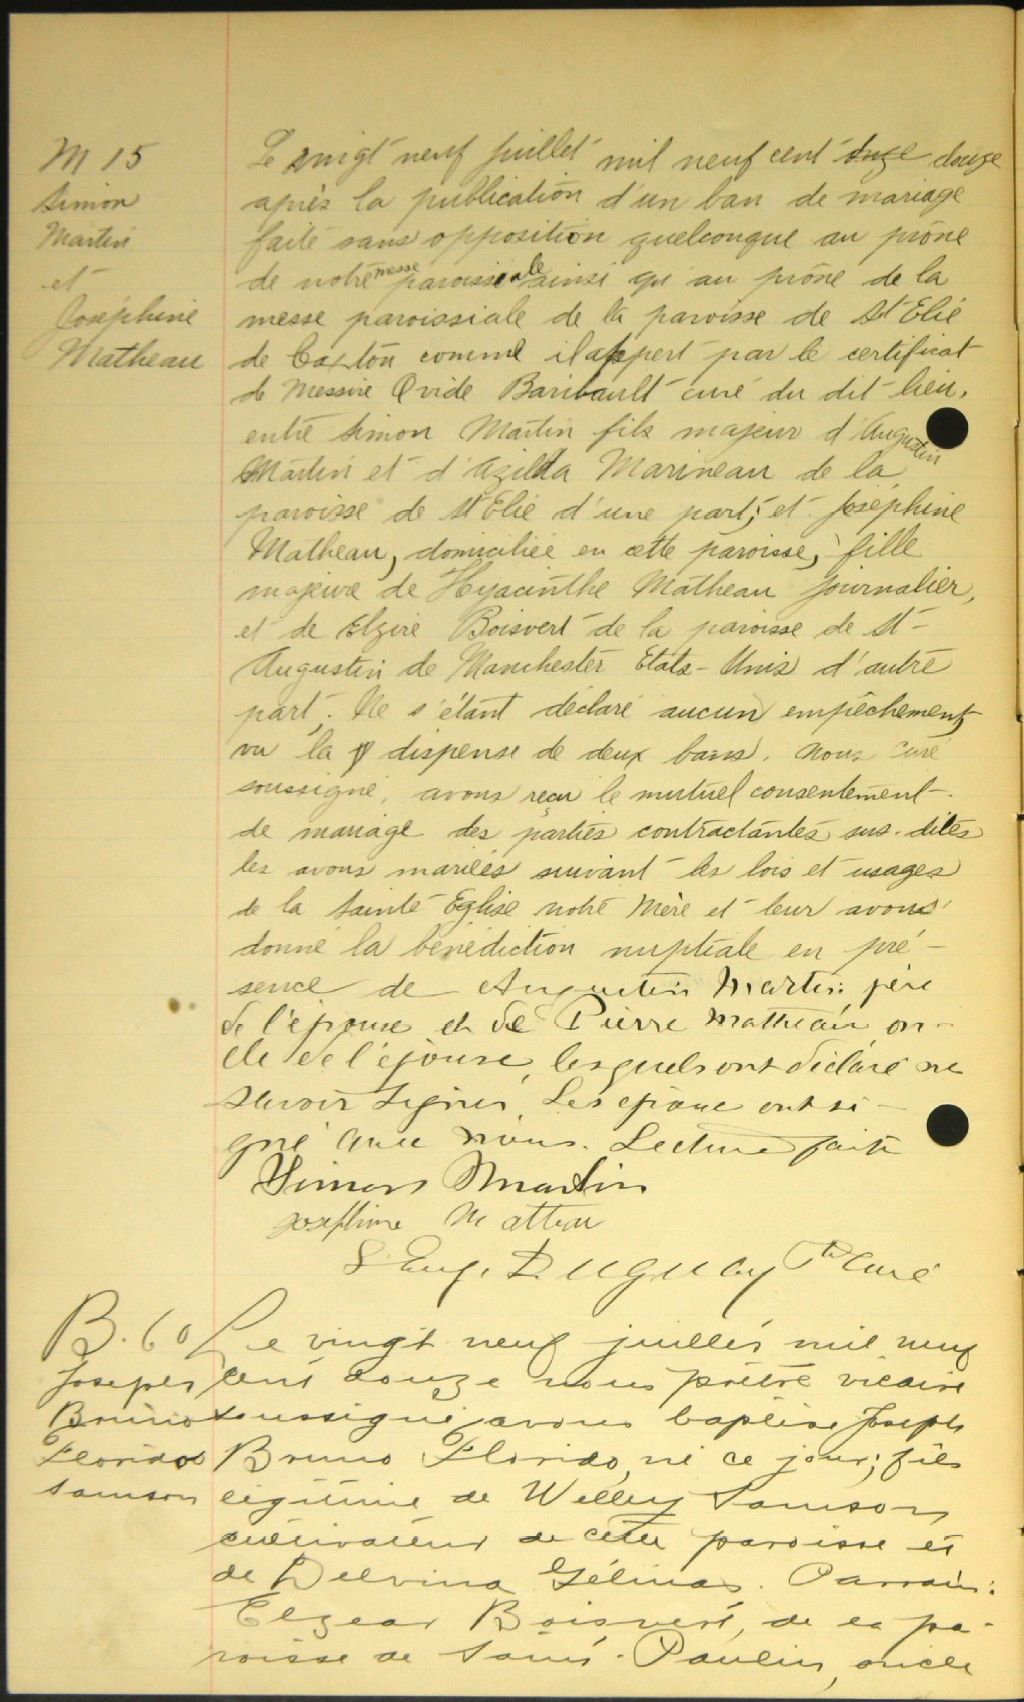 M 15
Simon
Martin
et
Joséphine
Matheau
Le vingt neuf juillet mil neuf cent onze douze
après la publication d'un ban de mariage
faite sans opposition quelconque au prône
de notre messe paroissiale ainsi qu'au prône de la
messe paroissiale de la paroisse de St Elie
de Caxton comme il appert par le certificat
de Messire Ovide Baribault curé du dit lieu.
entre Simon Martin fils majeur d'Augustin
Martin et d'Azilda Marineau de la
paroisse de St Elie d'une part; et Joséphine
Matheau, domiciliée en cette paroisse, fille
majeure de Hyacinthe Matheau journalier,
et de Elzire Boisvert de la paroisse de St-
Augustin de Manchester Etats-Unis d'autre
part. Ne s'étant déclaré aucun empêchement,
vu la dispense de deux bans. Nous curé
soussigné, avons reçu le mutuel consentement
de mariage des parties contractantes sus-dites
les avons mariées suivant les lois et usages
de la Sainte Eglise notre Mère et leur avons
donné la bénédiction nuptiale en pré-
sence de Augustin Martin, père
de l'épouse et de Pierre Mattheau on-
cle de l'épouse, lesquels ont déclaré ne
savoir signer. Les époux ont si-
gné avec nous. Lecture faite
Simon Martin
Josephine Matteau
S. Eug. Duguay Ptre Curé
B. 60
Joseph
Bruno
Florido
Samson
Le vingt neuf juillet mil neuf
cent douze nous prêtre vicaire
soussigné, avons baptisé Joseph
Bruno Florido, né ce jour; fils
légitime de Willey Samson
cultivateur de cette paroisse et
de Delvina Gélinas. Parrain:
Elzear Boisvert, de la pa-
roisse de Saint-Paulin, oncle